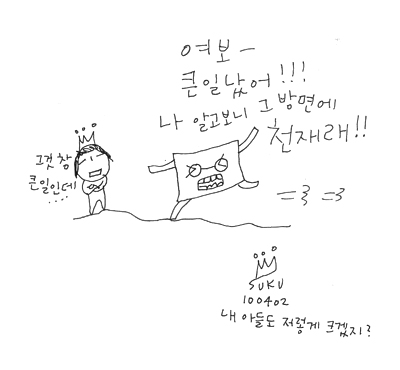 여보-
큰일났어!!!
나 알고보니 그 방면에
천재래!!
그것 참
큰일인데
.....
SUKU
100402
내 아들도 저렇게 크겠지?